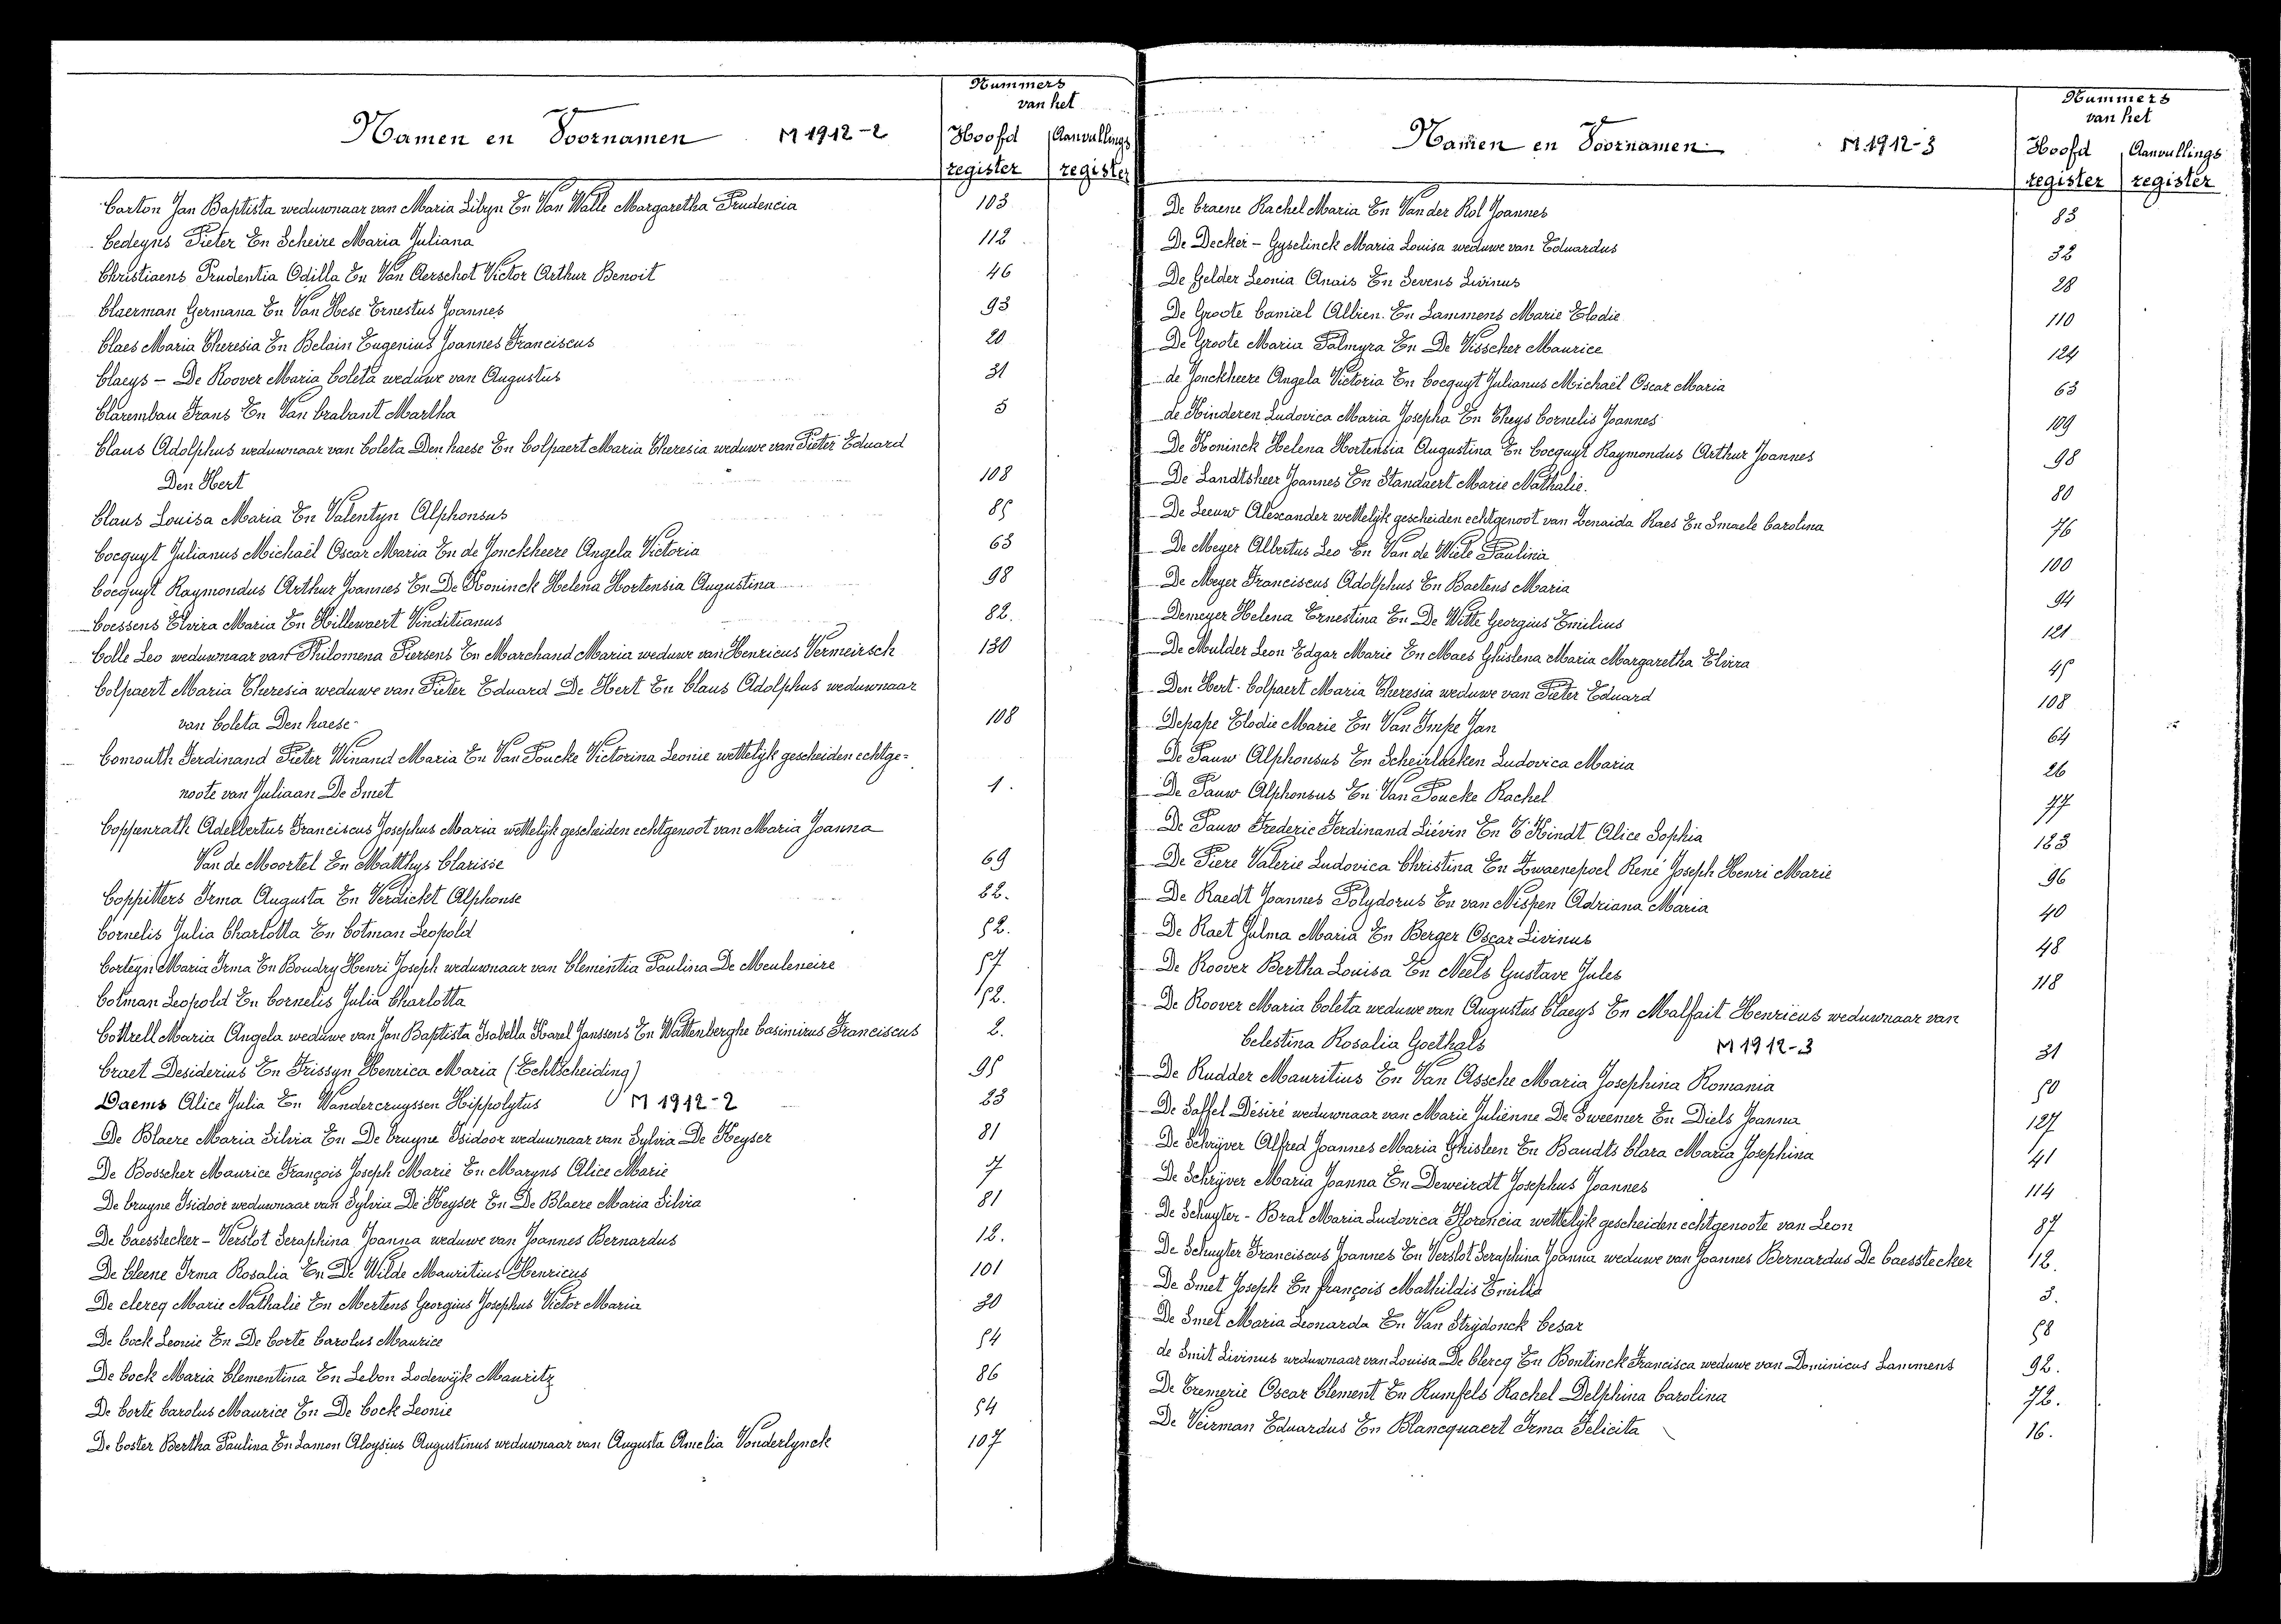 Nummers
van het
Namen en Voornamen M 1912-2 Hoofd Aanvullings
register register
Carton Jan Baptista weduwnaar van Maria Libyn En Van Walle Margaretha Prudencia 103
Cedeyns Pieter En Scheire Maria Juliana 112
Christiaens Prudentia Odilla En Van Aerschot Victor Arthur Benoit 46
Claerman Germana En Van Hese Ernestus Joannes 93
Claes Maria Theresia En Belain Eugenius Joannes Franciscus 20
Claeys - De Roover Maria Coleta weduwe van Augustus 31
Clarembau Frans En Van Crabant Martha 5
Claus Adolphus weduwnaar van Coleta Den haese En Colpaert Maria Theresia weduwe van Pieter Eduard
Den Hert 108
Claus Louisa Maria En Valentyn Alphonsus 85
Cocquyt Julianus Michaël Oscar Maria En de Jonckheere Angela Victoria 63
Cocquyt Raymondus Arthur Joannes En De Koninck Helena Hortensia Augustina 98
Coessens Elvira Maria En Hillewaert Vinditianus 82.
Colle Leo weduwnaar van Philomena Piersens En Marchand Maria weduwe van Henricus Vermeirsch 130
Colpaert Maria Theresia weduwe van Pieter Eduard De Hert En Claus Adolphus weduwnaar
van Coleta Den haese 108
Comouth Ferdinand Pieter Winand Maria En Van Poucke Victorina Leonie wettelijk gescheiden echtge=
noote van Juliaan De Smet 1.
Coppenrath Adelbertus Franciscus Josephus Maria wettelijk gescheiden echtgenoot van Maria Joanna
Van de Moortel En Matthys Clarisse 69
Coppitters Irma Augusta En Verdickt Alphonse 22.
Cornelis Julia Charlotta En Cotman Leopold 52.
Corteyn Maria Irma En Boudry Henri Joseph weduwnaar van Clementia Paulina De Meuleneire 57
Cotman Leopold En Cornelis Julia Charlotta 52.
Cottrell Maria Angela weduwe van Jan Baptista Isabella Karel Janssens En Wattenberghe Casimirus Franciscus 2.
Craet Desiderius En Frissyn Henrica Maria (Echtscheiding) 95
Daems Alice Julia En Vandercruyssen Hippolytus M 1912-2 23
De Blaere Maria Silvia En De Cruyne Isidoor weduwnaar van Sylvia De Keyser 81
De Bosscher Maurice François Joseph Marie En Maryns Alice Marie 7
De Cruyne Isidoor weduwnaar van Sylvia De Keyser En De Blaere Maria Silvia 81
De Caesstecker - Verslot Seraphina Joanna weduwe van Joannes Bernardus 12.
De Cleene Irma Rosalia En De Wilde Mauritius Henricus 101
De clercq Marie Nathalie En Mertens Georgius Josephus Victor Maria 30
De Cock Leonie En De Corte Carolus Maurice 54
De Cock Maria Clementina En Lebon Lodewijk Mauritz 86
De Corte Carolus Maurice En De Cock Leonie 54
De Coster Bertha Paulina En Lamon Aloysius Augustinus weduwnaar van Augusta Amelia Vonderlynck 107
Nummers
van het
Namen en Voornamen M 1912-3 Hoofd Aanvullings
register register
De Craene Rachel Maria En Van der Rol Joannes 83
De Decker - Gyselinck Maria Louisa weduwe van Eduardus 32
De Gelder Leonia Anais En Sevens Livinus 28
De Groote Camiel Albien En Lammens Marie Elodie 110
De Groote Maria Palmyra En De Visscher Maurice 124
de Jonckheere Angela Victoria En Cocquyt Julianus Michaël Oscar Maria 63
de Kinderen Ludovica Maria Josepha En Theys Cornelis Joannes 109
De Koninck Helena Hortensia Augustina En Cocquyt Raymondus Arthur Joannes 98
De Landtsheer Joannes En Standaert Marie Nathalie. 80
De Leeuw Alexander wettelijk gescheiden echtgenoot van Zenaida Raes En Smaele Carolina 76
De Meyer Albertus Leo En Van de Wiele Paulina 100
De Meyer Franciscus Adolphus En Baetens Maria 94
Demeyer Helena Ernestina En De Witte Georgius Emilius 121
De Mulder Leon Edgar Marie En Maes Ghislena Maria Margaretha Elvira 45
Den Hert - Colpaert Maria Theresia weduwe van Pieter Eduard 108
Depape Elodie Marie En Van Impe Jan 64
De Pauw Alphonsus En Scheirlaeken Ludovica Maria 26
De Pauw Alphonsus En Van Poucke Rachel 77
De Pauw Frederic Ferdinand Liévin En T'Kindt Alice Sophia 123
De Piere Valerie Ludovica Christina En Zwaenepoel René Joseph Henri Marie 96
De Raedt Joannes Polydorus En van Nispen Adriana Maria 40
De Raet Julma Maria En Berger Oscar Livinus 48
De Roover Bertha Louisa En Neels Gustave Jules 118
De Roover Maria Coleta weduwe van Augustus Claeys En Malfait Henricus weduwnaar van
Celestina Rosalia Goethals M 1912-3 31
De Rudder Mauritius En Van Assche Maria Josephina Romania 50
De Saffel Désiré weduwnaar van Marie Julienne De Sweemer En Diels Joanna 127
De Schrijver Alfred Joannes Maria Ghisleen En Baudts Clara Maria Josephina 41
De Schrijver Maria Joanna En Deweirdt Josephus Joannes 114
De Schuyter - Bral Maria Ludovica Florencia wettelijk gescheiden echtgenoote van Leon 87
De Schuyter Franciscus Joannes En Verslot Seraphina Joanna weduwe van Joannes Bernardus De Caesstecker 12.
De Smet Joseph En françois Mathildis Emilia 3.
De Smet Maria Leonarda En Van Strydonck Cesar 58
de Smit Livinus weduwnaar van Louisa De Clercq En Bontinck Francisca weduwe van Dominicus Lammens 92.
De Tremerie Oscar Clement En Rumfels Rachel Delphina Carolina 72.
De Veirman Eduardus En Blancquaert Irma Felicita 16.